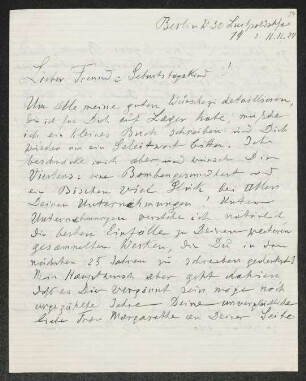 Berlin W 30
11.11.
Lieber Freund u Geburtstagskind!
Um alle meine guten Wünsche zu detaillieren,
die ich für Dich auf Lager habe, müsste
ich ein kleines Buch schreiben und Dich
wieder um ein Geleitwort bitten. Ich
beschränke mich aber und wünsche Dir
eine Bombengesundheit und
ein Bischen viel Glück bei allen
Deinen Unternehmungen! Unter
Unternehmungen verstehe ich natürlich
die besten Einfälle zu Deinen weiteren
gesammelten Werken, die Du in den
nächsten 25 Jahren zu schreiben gedenkst!
Mein Hauptwunsch aber geht dahin
daß es Dir vergönnt sein möge noch
ungezählte Jahre Deine unvergleichliche
liebe Frau Margarethe an Deiner Seite